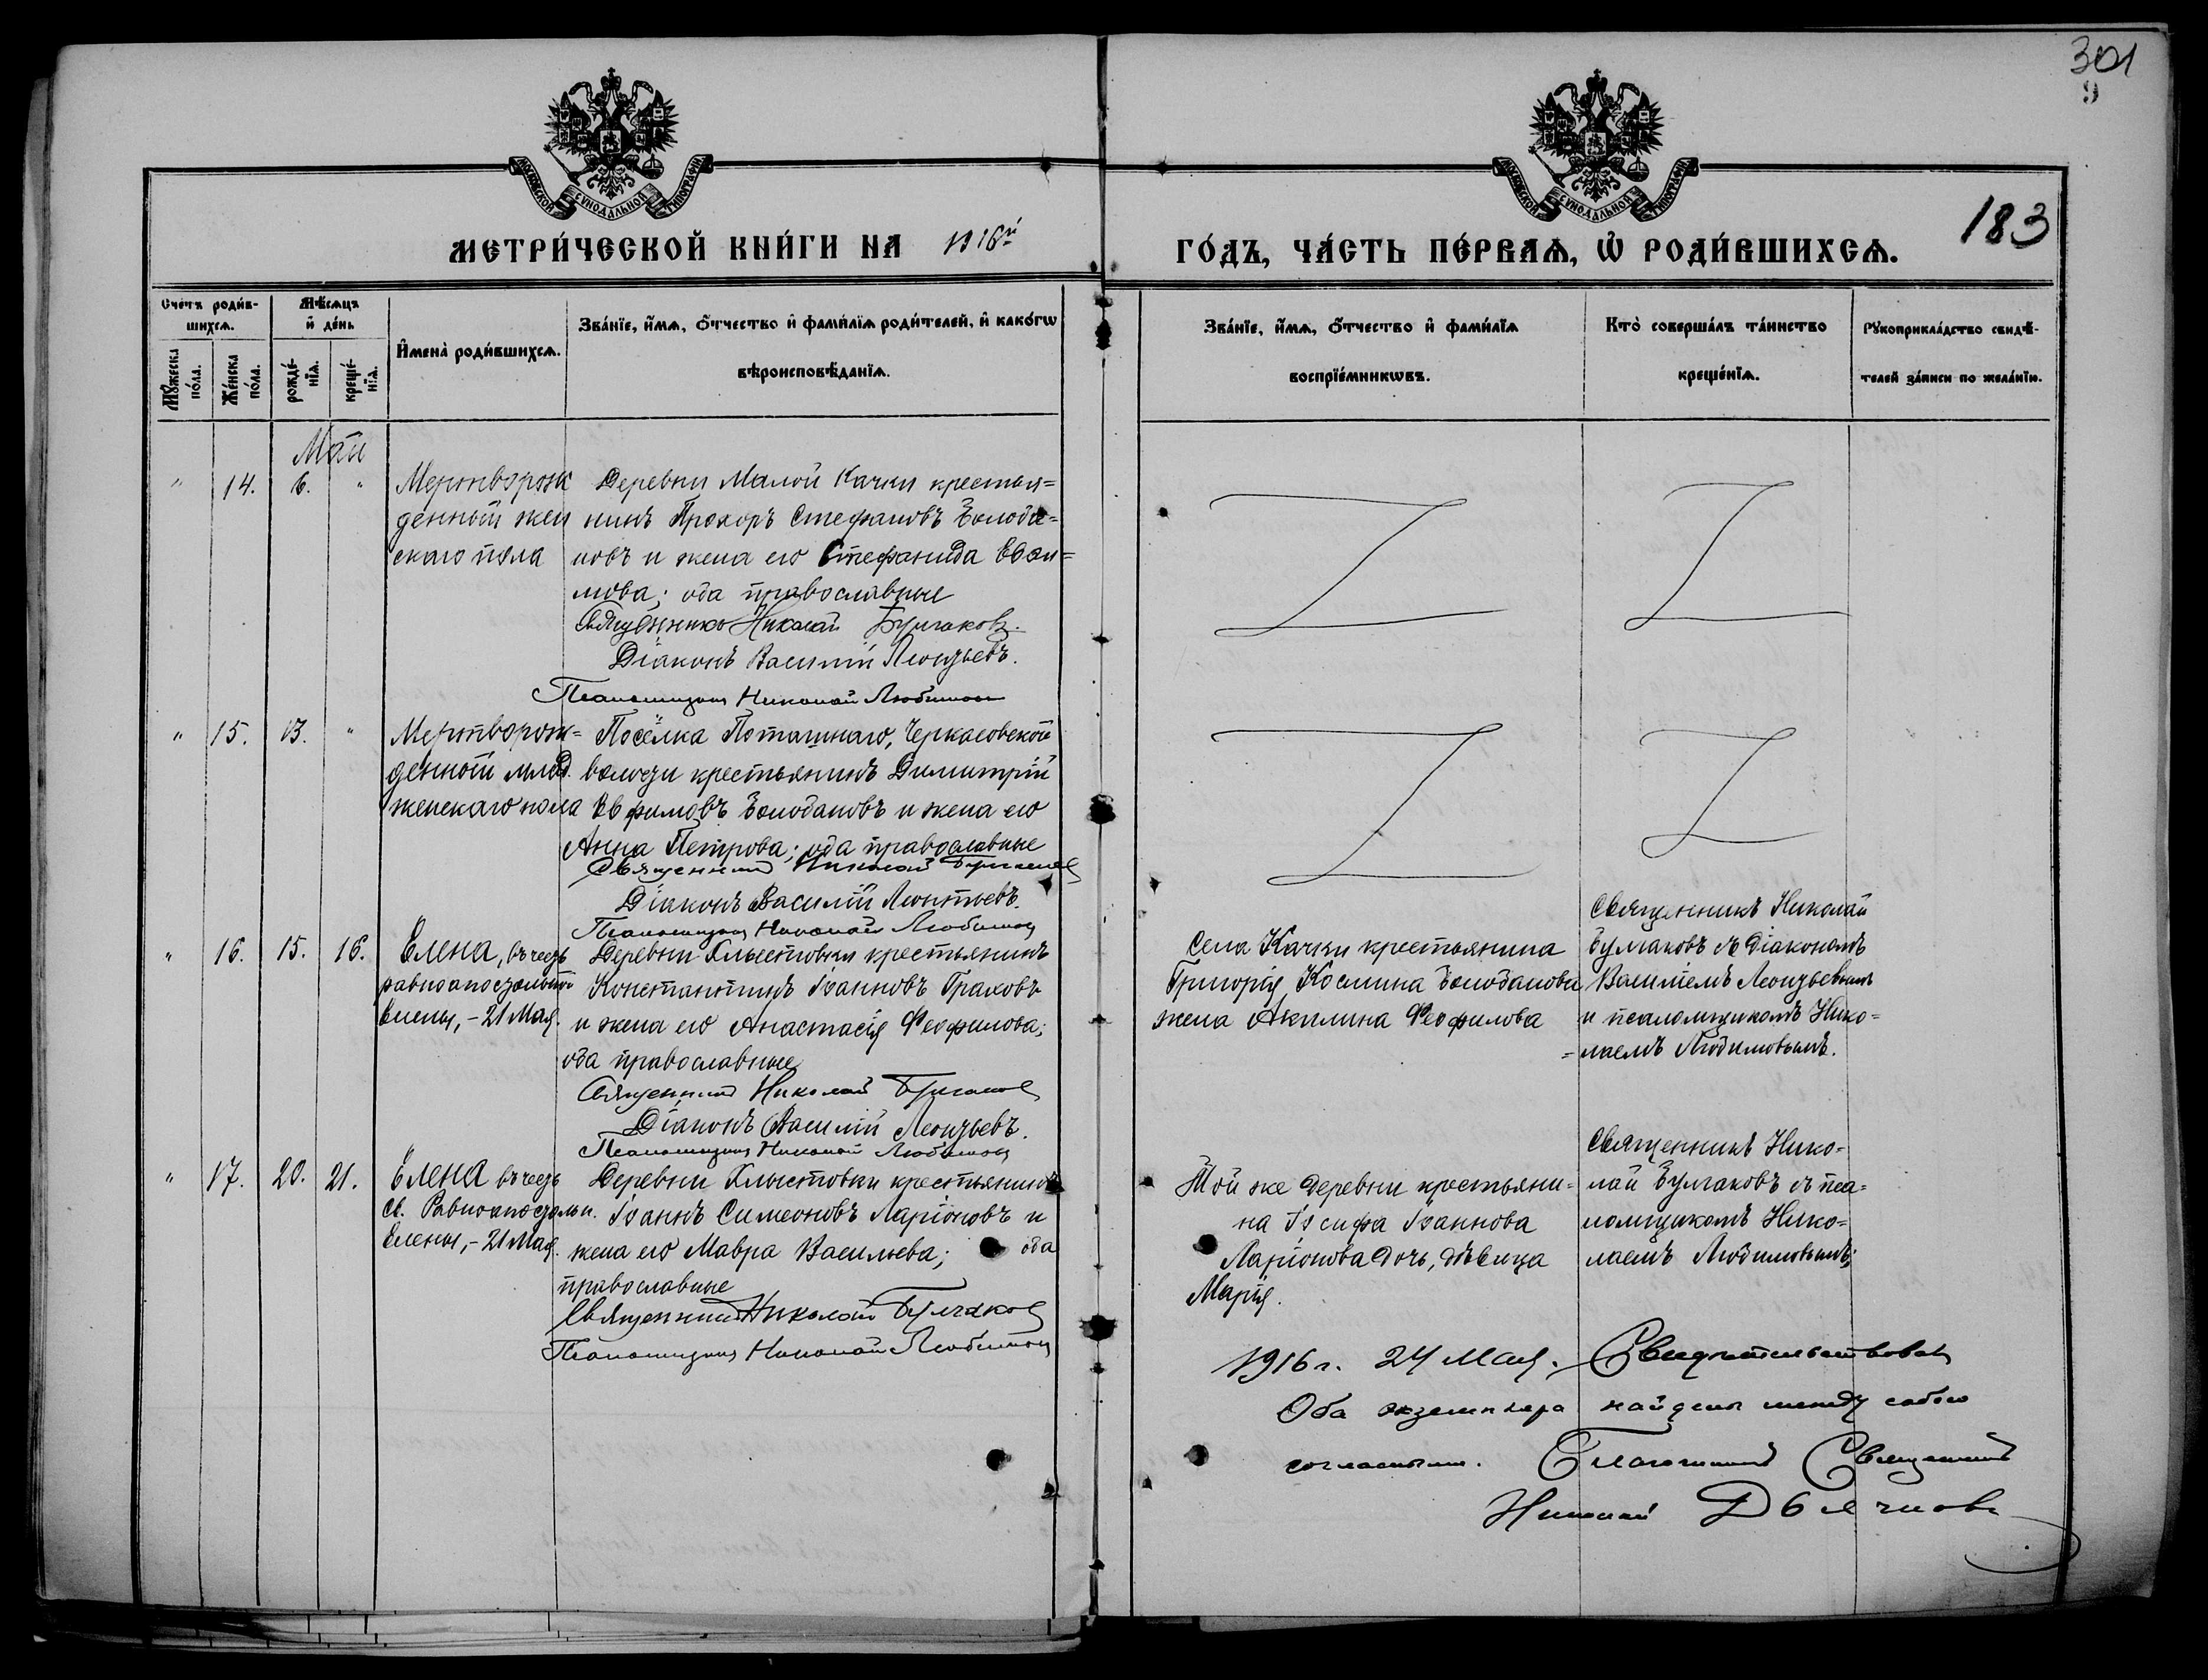 301
9
МОСКОВСКОЙ СѴНОДАЛЬНОЙ ТИПОГРАФІИ
МОСКОВСКОЙ СѴНОДАЛЬНОЙ ТИПОГРАФІИ
183
МЕТРИ́ЧЕСКОЙ КНИ́ГИ НА 1916й
ГО́ДЪ, ЧА́СТЬ ПЕ́РВАѦ, Ѽ РОДИ́ВШИХСѦ.
Счетъ роди́в-
шихсѧ.
Мѣ́сѧцъ
и҆ де́нь
Мꙋ́жеска
по́ла.
Же́нска
по́ла.
рожде́-
нїѧ.
креще́-
нїѧ.
И҆мена̀ роди́вшихсѧ.
Зва́нїе, и҆́мѧ, ѻ҆́тчество и҆ фами́лїѧ роди́телей, и҆ како́гѡ
вѣроисповѣ́данїѧ.
Зва́нїе, и҆́мѧ, ѻ҆́тчество и҆ фами́лїѧ
воспрїе́мникѡвъ.
Кто̀ соверша́лъ та́инство
креще́нїѧ.
Рꙋкоприкла́дство свидѣ́-
телей за́писи по жела́нїю.
Май
" 14. 6. "
Мертворож
денный жен
скаго пола
Деревни Малой Качки крестья=
нинъ Прохоръ Стефановъ Болода=
новъ и жена его Стефанида Евѳи=
мова; оба православные
Священникъ Николай Булгаковъ.
Діаконъ Василій Леонтьевъ.
Псаломщикъ Николай Любимовъ
" 15. 13. "
Мертворож=
денный млад.
женскаго пола
Посёлка Поташнаго, Черкасовской
волости крестьянинъ Димитрій
Евфимовъ Болодановъ и жена его
Анна Петрова; оба православные
Священникъ Николай Булгаковъ
Діаконъ Василій Леонтьевъ.
Псаломщикъ Николай Любимовъ
" 16. 15. 16.
Елена, въ честь
равноапостольной
Елены, - 21 Мая.
Деревни Хлыстовки крестьянинъ
Константинъ Іоанновъ Граховъ
и жена его Анастасія Феофилова;
оба православные
Священникъ Николай Булгаковъ
Діаконъ Василій Леонтьевъ.
Псаломщикъ Николай Любимовъ
Села Качки крестьянина
Григорія Космина Болоданова
жена Акилина Феофилова
Священникъ Николай
Булгаковъ съ діакономъ
Василіемъ Леонтьевымъ
и псаломщикомъ Нико=
=лаемъ Любимовымъ.
" 17. 20. 21.
Елена въ честь
св. Равноапостольн.
Елены, - 21 Мая.
Деревни Хлыстовки крестьянинъ
Іоаннъ Симеоновъ Ларіоновъ и
жена его Мавра Васильева; оба
православные
Священникъ Николай Булгаковъ
Псаломщикъ Николай Любимовъ
Той же деревни крестьяни=
на Іосифа Іоаннова
Ларіонова дочь, дѣвица
Марія.
Священникъ Нико=
лай Булгаковъ съ пса=
ломщикомъ Нико=
лаемъ Любимовымъ;
1916 г. 24 Мая. Свидѣтельствовалъ
Оба экземпляра найдены между собою
согласными. Благочинный Священникъ
Николай